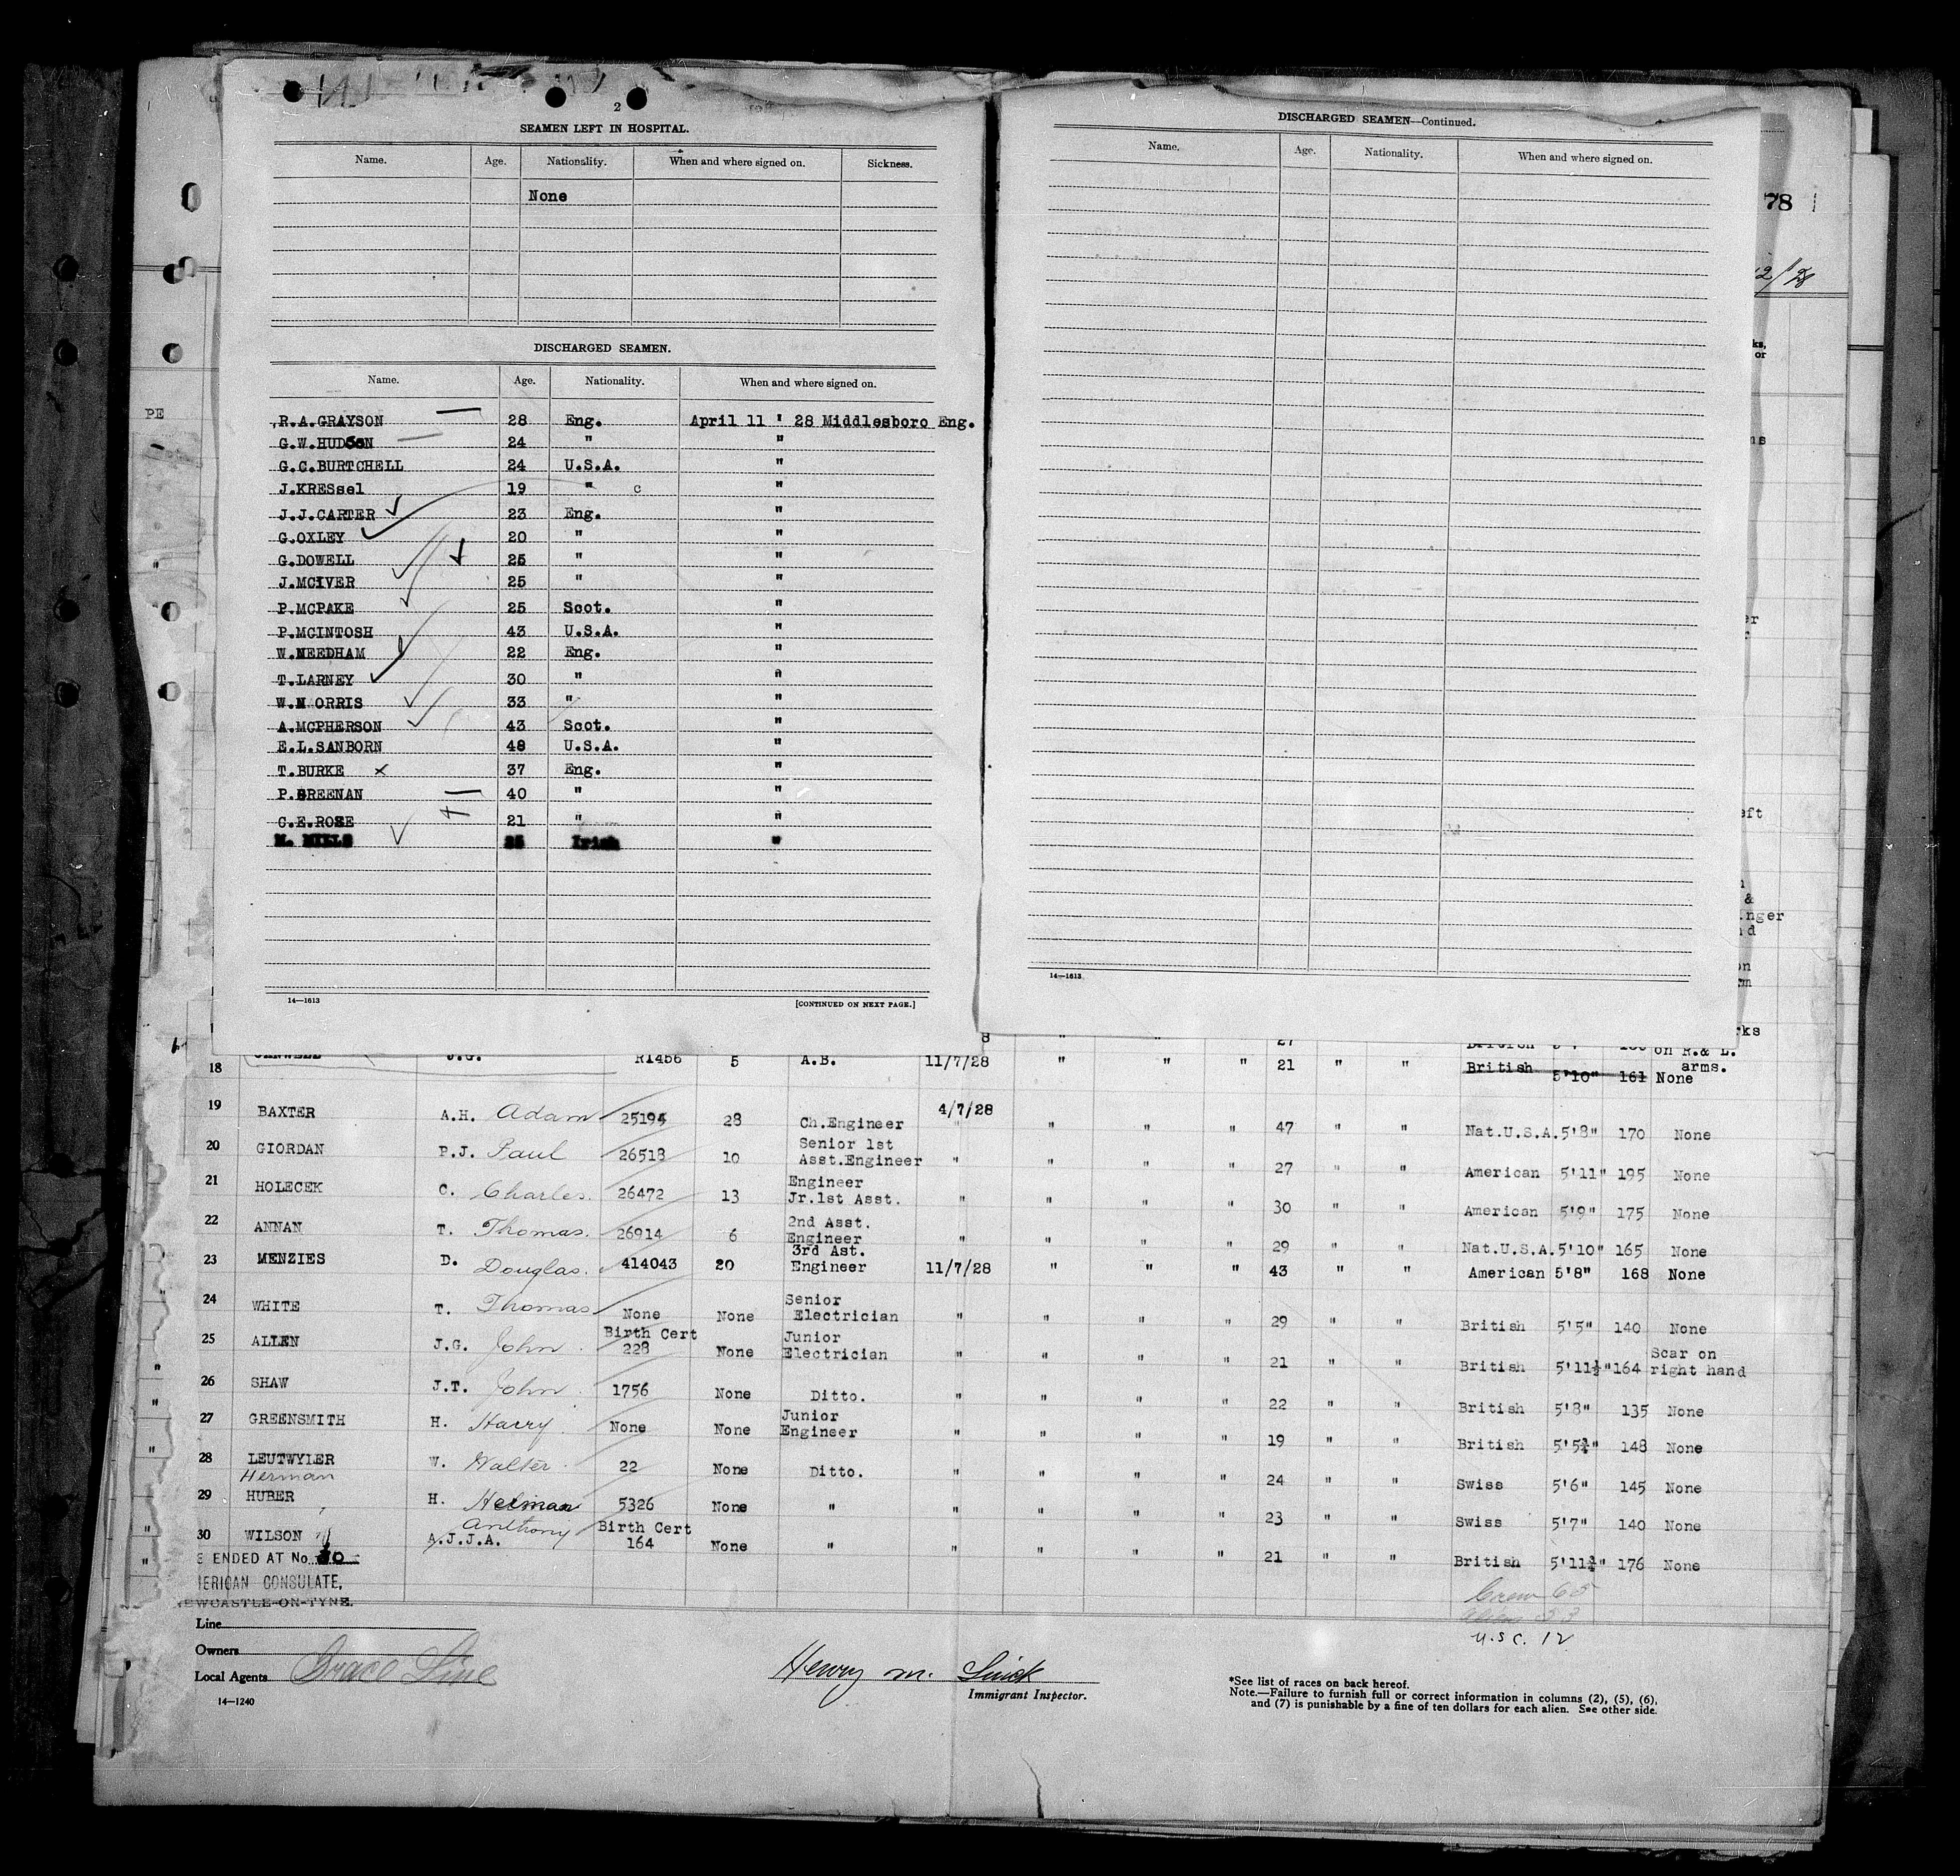 2
SEAMEN LEFT IN HOSPITAL.
Name. Age. Nationality. When and where signed on. Sickness.
None
DISCHARGED SEAMEN.
Name. Age. Nationality. When and where signed on.
R.A.GRAYSON 28 Eng. April 11 ' 28 Middlesboro Eng.
G.W.HUDSON 24 " "
G.C.BURTCHELL 24 U.S.A. "
J.KRESsel 19 " c "
J.J.CARTER 23 Eng. "
G.OXLEY 20 " "
G.DOWELL 25 " "
J.MCIVER 25 " "
P.MCPAKE 25 Scot. "
P.MCINTOSH 43 U.S.A. "
W.NEEDHAM 22 Eng. "
T.LARNEY 30 " "
W.N ORRIS 33 " "
A.MCPHERSON 43 Scot. "
E.L.SANBORN 48 U.S.A. "
T.BURKE x 37 Eng. "
P.BREENAN 40 " "
C.E.ROSE 21 " "
Irish "
14—1613 [CONTINUED ON NEXT PAGE.]
DISCHARGED SEAMEN—Continued.
Name. Age. Nationality. When and where signed on.
14—1613
78
12/28
ks,
or
PE
18 J.G. R1456 5 A.B. 11/7/28 " " " 21 " " British 5'10" 161 None
on R.& L.
arms.
19 BAXTER A.H. Adam 25194 28 Ch.Engineer 4/7/28 " " " 47 " " Nat.U.S.A. 5'8" 170 None
20 GIORDAN P.J. Paul 26518 10 Senior 1st Asst.Engineer " " " " 27 " " American 5'11" 195 None
21 HOLECEK C. Charles. 26472 13 Engineer Jr.1st Asst. " " " " 30 " " American 5'9" 175 None
22 ANNAN T. Thomas. 26914 6 2nd Asst. Engineer " " " " 29 " " Nat.U.S.A. 5'10" 165 None
23 MENZIES D. Douglas. 414043 20 3rd Ast. Engineer 11/7/28 " " " 43 " " American 5'8" 168 None
24 WHITE T. Thomas None None Senior Electrician " " " " 29 " " British 5'5" 140 None
25 ALLEN J.G. John. Birth Cert 228 None Junior Electrician " " " " 21 " " British 5'11½" 164 Scar on right hand
26 SHAW J.T. John. 1756 None Ditto. " " " " 22 " " British 5'8" 135 None
27 GREENSMITH H. Harry. None None Junior Engineer " " " " 19 " " British 5'5¾" 148 None
28 LEUTWYLER W. Walter. 22 None Ditto. " " " " 24 " " Swiss 5'6" 145 None
Herman
29 HUBER H. Herman 5326 None " " " " " 23 " " Swiss 5'7" 140 None
30 WILSON A.J.J.A. Anthony Birth Cert 164 None " " " " " 21 " " British 5'11¾" 176 None
E ENDED AT No. 30
MERICAN CONSULATE,
NEWCASTLE-ON-TYNE.
Crew 65
Aliens 53
U.S.C. 12
Line
Owners
Local Agents Grace Line
14—1240
Henry M.
Immigrant Inspector.
*See list of races on back hereof.
Note.—Failure to furnish full or correct information in columns (2), (5), (6),
and (7) is punishable by a fine of ten dollars for each alien. See other side.